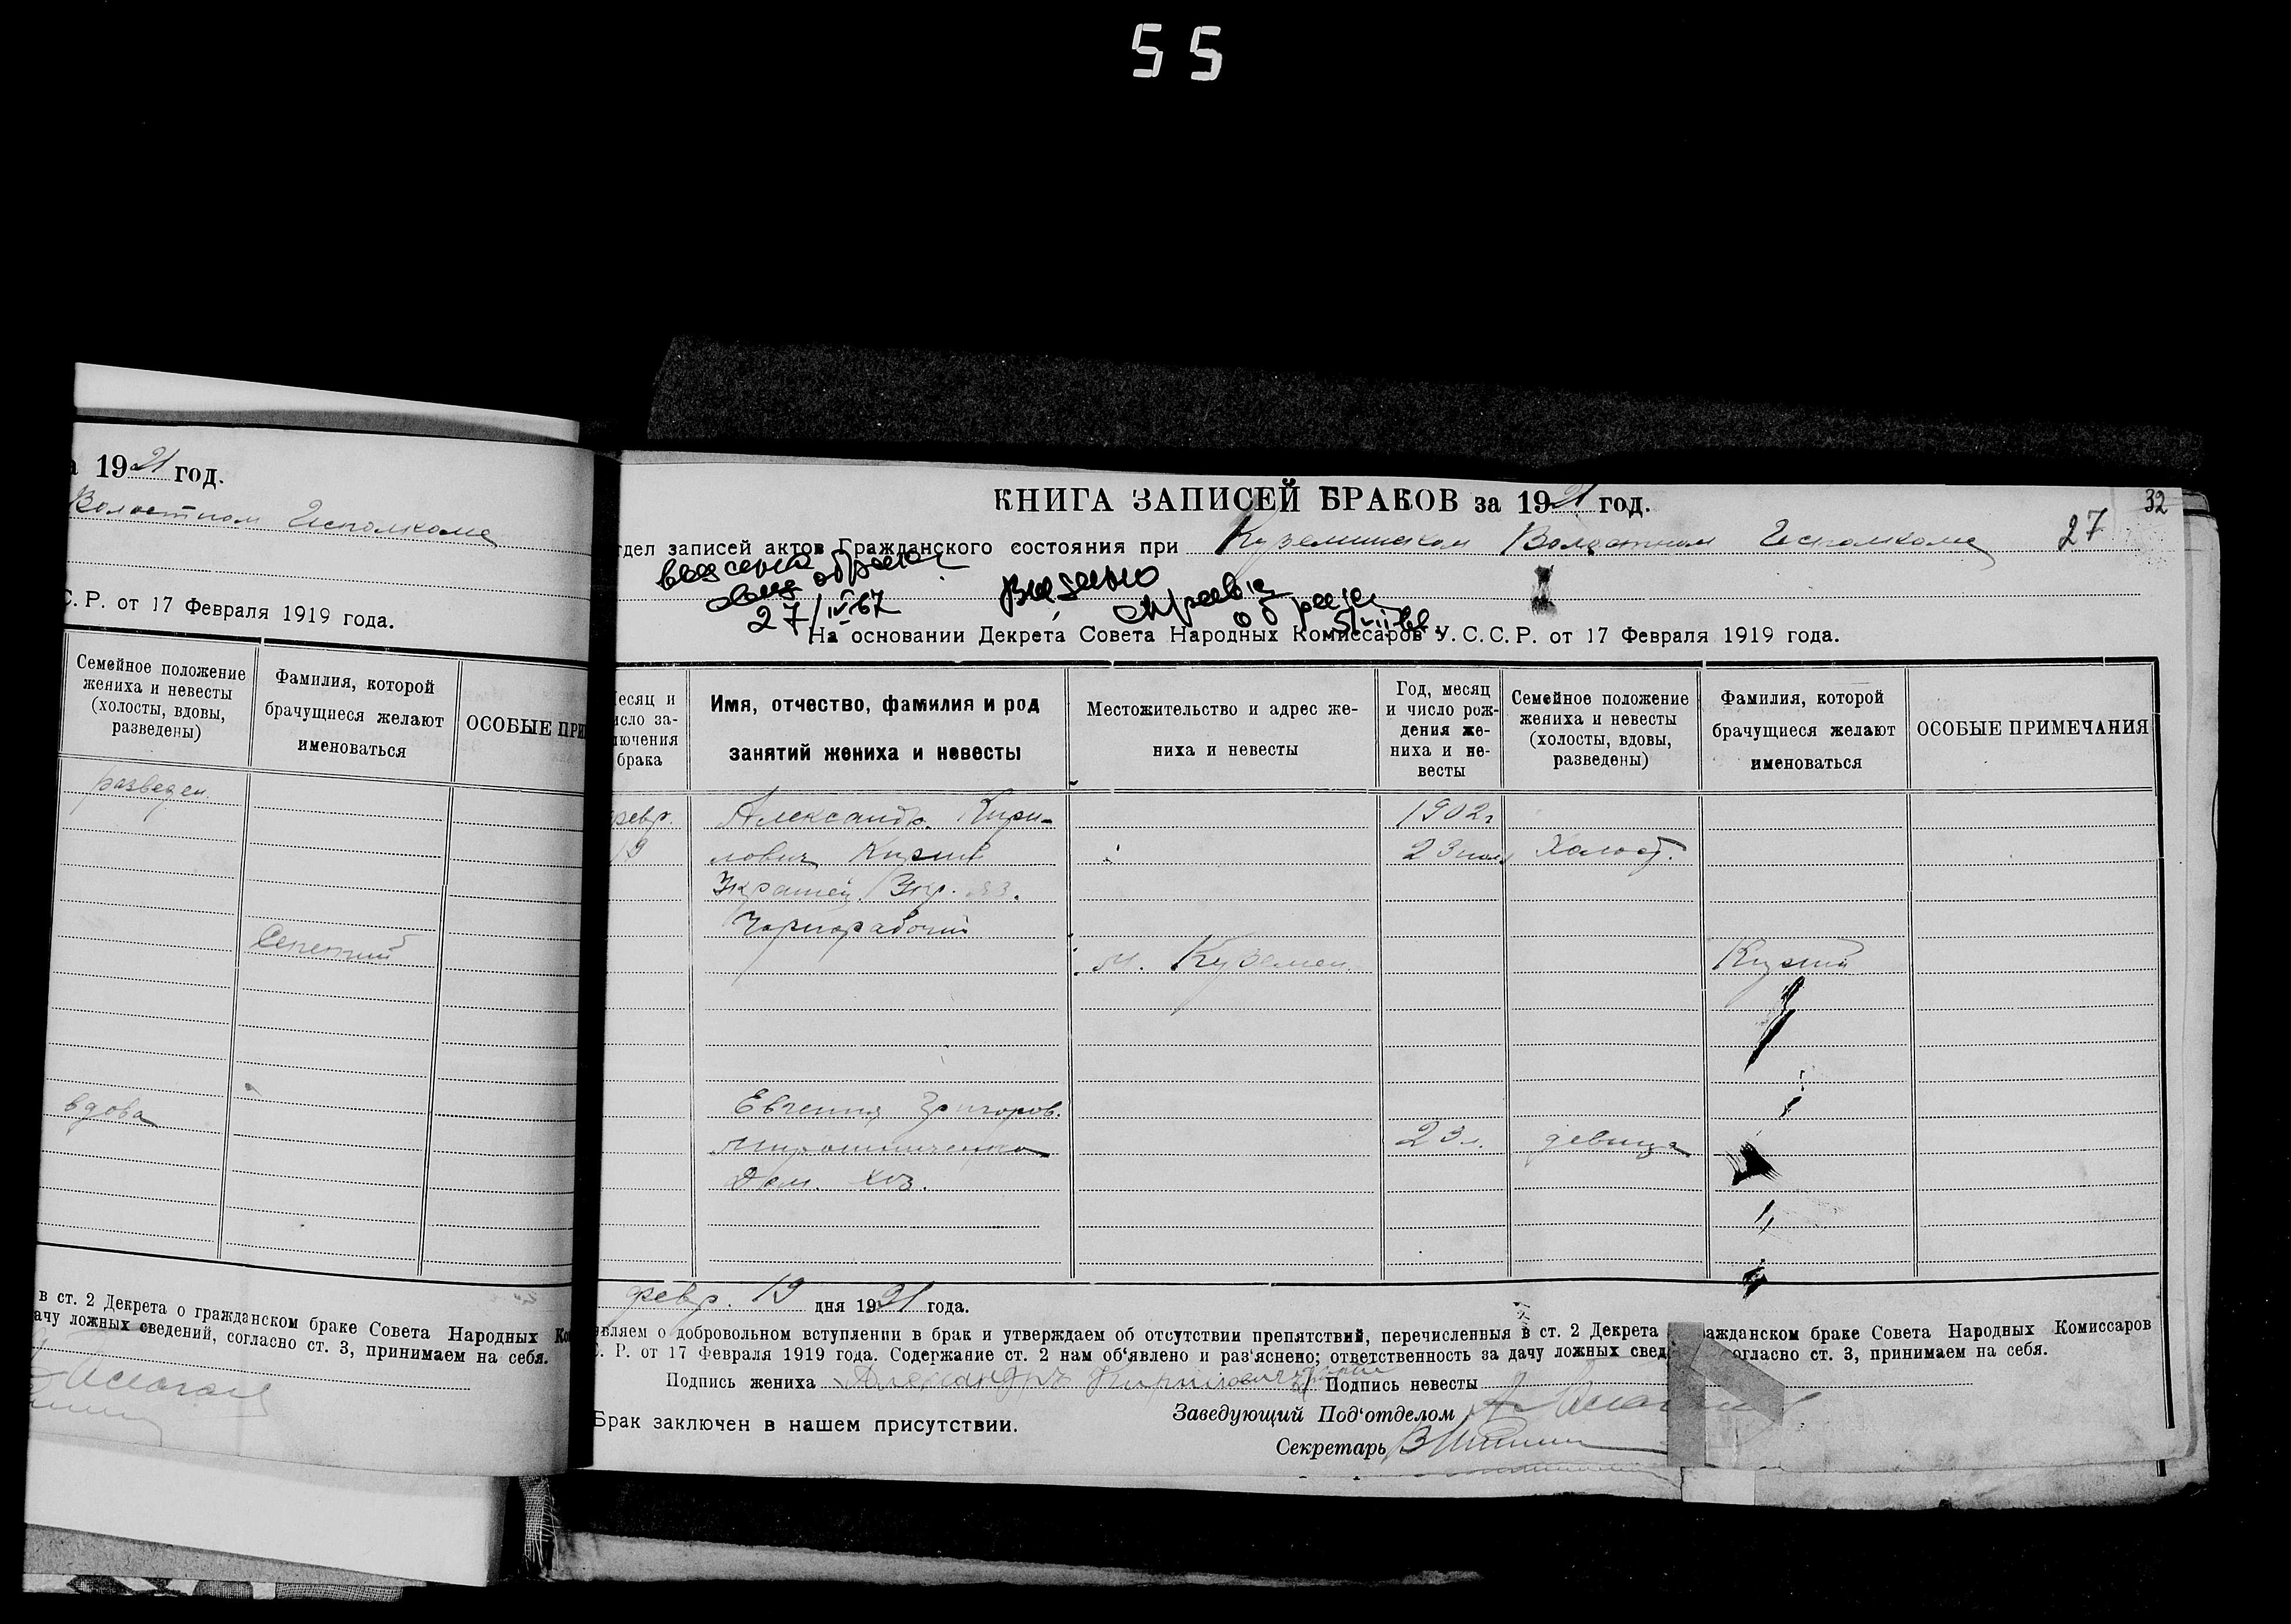 55
а 1921 год.
Волостном Исполкоме
С. Р. от 17 Февраля 1919 года.
Семейное положение жениха и невесты (холосты, вдовы, разведены)
Фамилия, которой брачущиеся желают именоваться
ОСОБЫЕ ПРИ
разведен.
вдова
в ст. 2 Декрета о гражданском браке Совета Народных Ко
ачу ложных сведений, согласно ст. 3, принимаем на себя.
32
КНИГА ЗАПИСЕЙ БРАКОВ за 1921 год.
27
тдел записей актов Гражданского состояния при Куземинском Волостном Исполкоме
27/IV-67
На основании Декрета Совета Народных Комиссаров У.С.С.Р. от 17 Февраля 1919 года.
есяц и исло за- лючения брака
Имя, отчество, фамилия и род занятий жениха и невесты
Местожительство и адрес же- ниха и невесты
Год, месяц и число рож- дения же- ниха и не- весты
Семейное положение жениха и невесты (холосты, вдовы, разведены)
Фамилия, которой брачущиеся желают именоваться
ОСОБЫЕ ПРИМЕЧАНИЯ
февр. Александр. Кири- 1902г
19 лович 23 Холост.
Чернорабочий
м. Куземен.
Евгения Григоров.
Мирошниченко 23 л. девица
Дом. хоз.
февр. 19 дня 1921 года.
являем о добровольном вступлении в брак и утверждаем об отсутствии препятствий, перечисленныя в ст. 2 Декрета ажданском браке Совета Народных Комиссаров
С. Р. от 17 Февраля 1919 года. Содержание ст. 2 нам об‘явлено и раз‘яснено; ответственность за дачу ложных свед огласно ст. 3, принимаем на себя.
Подпись жениха Александръ Кириловичъ Подпись невесты
Заведующий Под‘отделом
Брак заключен в нашем присутствии.
Секретарь